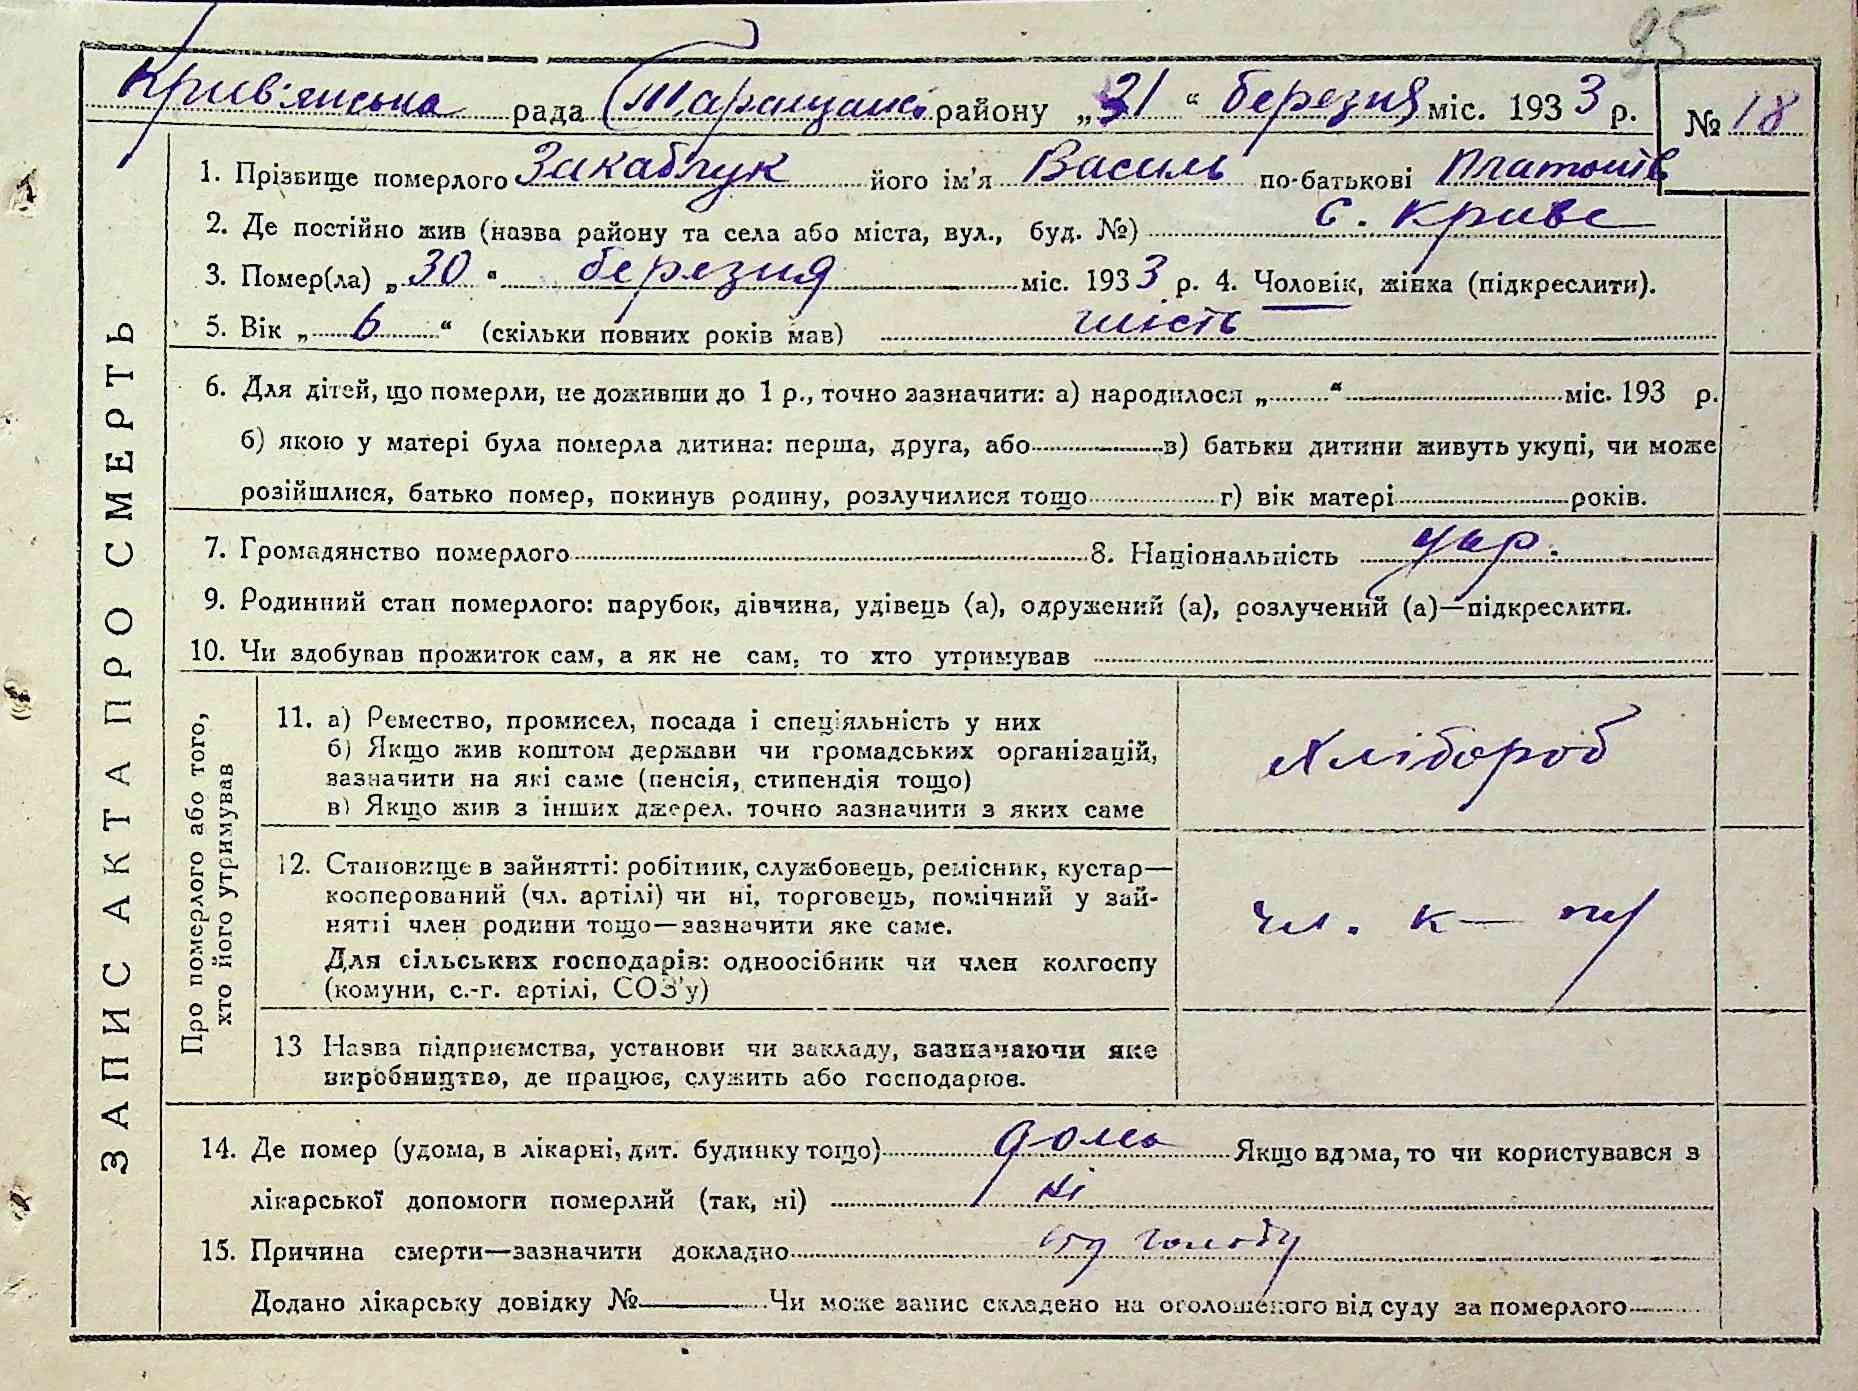 95
Крив'янська рада Таращанс. району „31“ березня міс. 1933 р. № 18
ЗАПИС АКТА ПРО СМЕРТЬ
1. Прізвище померлого Закаблук його ім'я Василь по-батькові Платонів
2. Де постійно жив (назва району та села або міста, вул., буд. №) с. Криве
3. Помер(ла) „30“ березня міс. 1933 р. 4. Чоловік, жінка (підкреслити).
5. Вік „6“ (скільки повних років мав) шість
6. Для дітей, що померли, не доживши до 1 р., точно зазначити: а) народилося „ “ міс. 193 р.
б) якою у матері була померла дитина: перша, друга, або в) батьки дитини живуть укупі, чи може
розійшлися, батько помер, покинув родину, розлучилися тощо г) вік матері років.
7. Громадянство померлого 8. Національність укр.
9. Родинний стан померлого: парубок, дівчина, удівець (а), одружений (а), розлучений (а)—підкреслити.
10. Чи здобував прожиток сам, а як не сам, то хто утримував
Про померлого або того,
хто його утримував
11. а) Ремество, промисел, посада і спеціяльність у них
б) Якщо жив коштом держави чи громадських організацій,
зазначити на які саме (пенсія, стипендія тощо)
в) Якщо жив з інших джерел, точно зазначити з яких саме
Хлібороб
12. Становище в зайнятті: робітник, службовець, ремісник, кустар—
кооперований (чл. артілі) чи ні, торговець, помічний у зай-
нятті член родини тощо—зазначити яке саме.
Для сільських господарів: одноосібник чи член колгоспу
(комуни, с.-г. артілі, СОЗ'у)
чл. к—пу
13 Назва підприємства, установи чи закладу, зазначаючи яке
виробництво, де працює, служить або господарює.
14. Де помер (удома, в лікарні, дит. будинку тощо) дома Якщо вдома, то чи користувався з
лікарської допомоги померлий (так, ні) ні
15. Причина смерти—зазначити докладно від голоду
Додано лікарську довідку № Чи може запис складено на оголошеного від суду за померлого